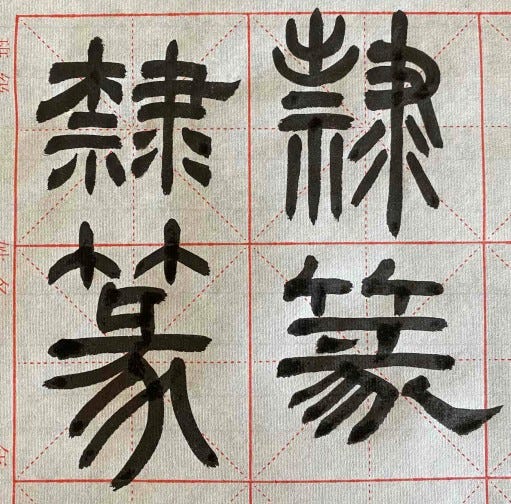 隸篆
隸篆